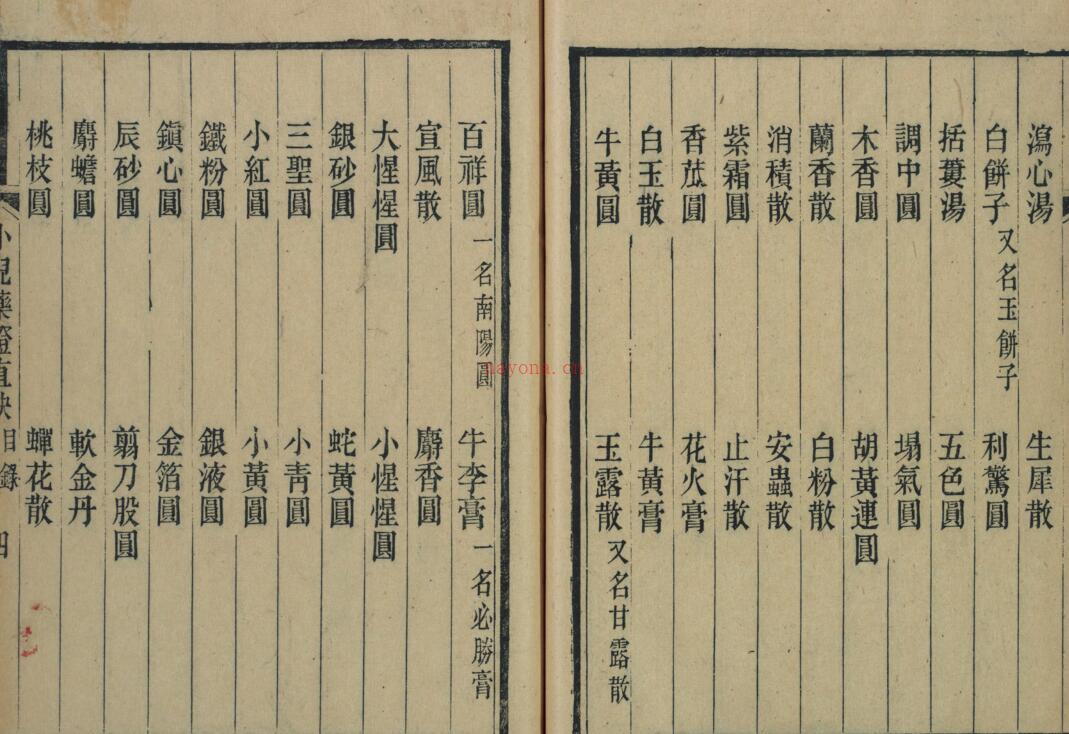 瀉心湯 生犀散
白餅子又名玉餅子 利驚圓
括蔞湯 五色圓
調中圓 塌氣圓
木香圓 胡黃連圓
蘭香散 白粉散
消積散 安蟲散
紫霜圓 止汗散
香苽圓 花火膏
白玉散 牛黃膏
牛黃圓 玉露散又名甘露散
百祥圓一名南陽圓 牛李膏一名必勝膏
宣風散 麝香圓
大惺惺圓 小惺惺圓
銀砂圓 蛇黃圓
三聖圓 小青圓
小紅圓 小黃圓
鐵粉圓 銀液圓
鎭心圓 金箔圓
辰砂圓 翦刀股圓
麝蟾圓 軟金丹
桃枝圓 蟬花散
小兒藥證直訣 目錄 四
nayona.cn